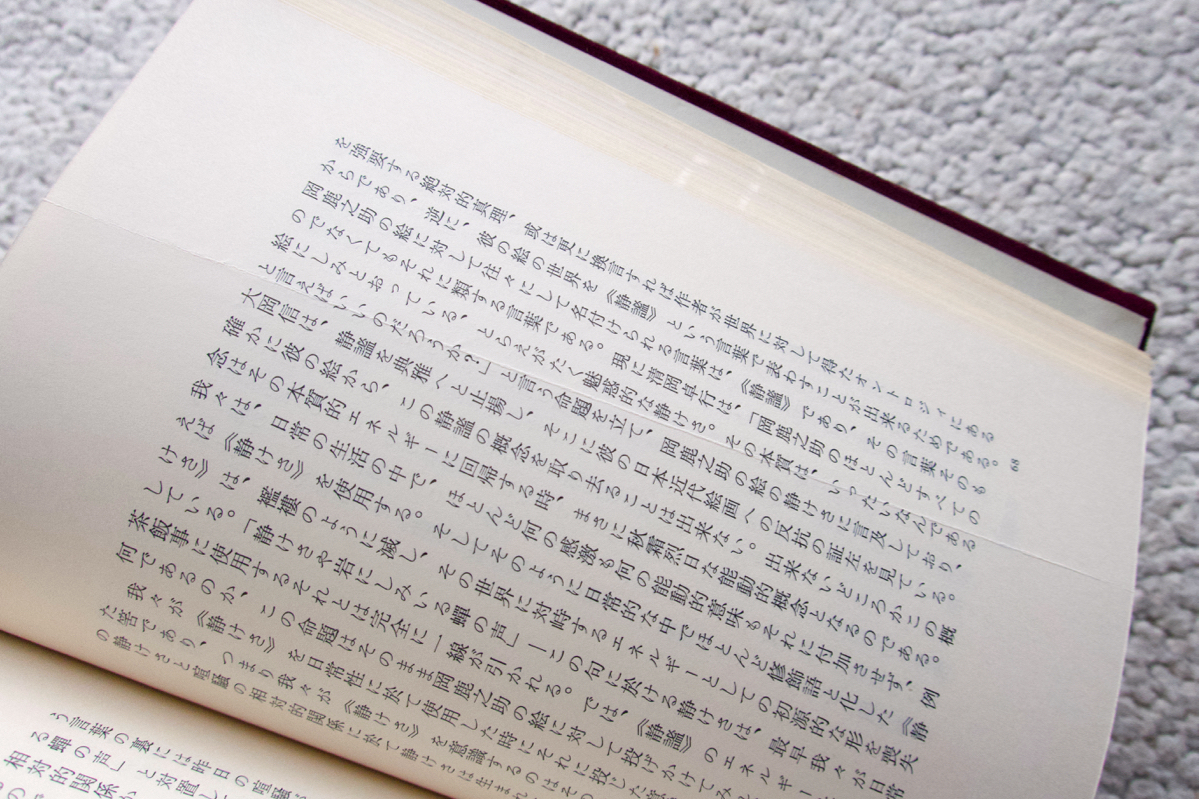 を強要する絶対的真理、或は更に換言すれば作者が世界に対して得たオントロジイにある
からであり、逆に、彼の絵の世界を《静謐》という言葉で表わすことが出来るためである。
岡鹿之助の絵に対して往々にして名付けられる言葉は、《静謐》であり、その言葉そのも
のでなくてもそれに類する言葉である。現に清岡卓行は、「岡鹿之助のほとんどすべての
絵にしみとおっている、とらえがたく魅惑的な静けさ。その本質は、いったいなんである
と言えばいいのだろうか？」と言う命題を立て、岡鹿之助の絵の静けさに言及しており、
大岡信は、静謐を典雅へと止揚し、そこに彼の日本近代絵画への反抗の証左を見ている。
確かに彼の絵から、この静謐の概念を取り去ることは出来ない。出来ないどころかこの概
念はその本質的エネルギーに回帰する時、まさに秋霜烈日な能動的概念となるのである。
我々は、日常の生活の中で、ほとんど何の感激も何の能動的意味もそれに付加させず、例
えば《静けさ》を使用する。そしてそのように日常的な中でほとんど修飾語と化した《静
けさ》は、襤褸のように滅し、その世界に対峙するエネルギーとしての初源的な形を喪失
している。「静けさや岩にしみいる蟬の声」―この句に於ける静けさは、最早我々が日常
茶飯事に使用するそれとは完全に一線が引かれる。では、《静謐》のエネルギー
何であるのか、この命題はそのまま岡鹿之助の絵に対して投げかけてみ
我々が《静けさ》を日常性に於て使用した時にそれに投じた
た答であり、つまり我々が《静けさ》を意識するのはその
の静けさと喧騒の相対的関係に於て静けさは生まれ
う言葉の裏には昨日の喧騒が
る蟬の声」と対置し
相対的関係か
68